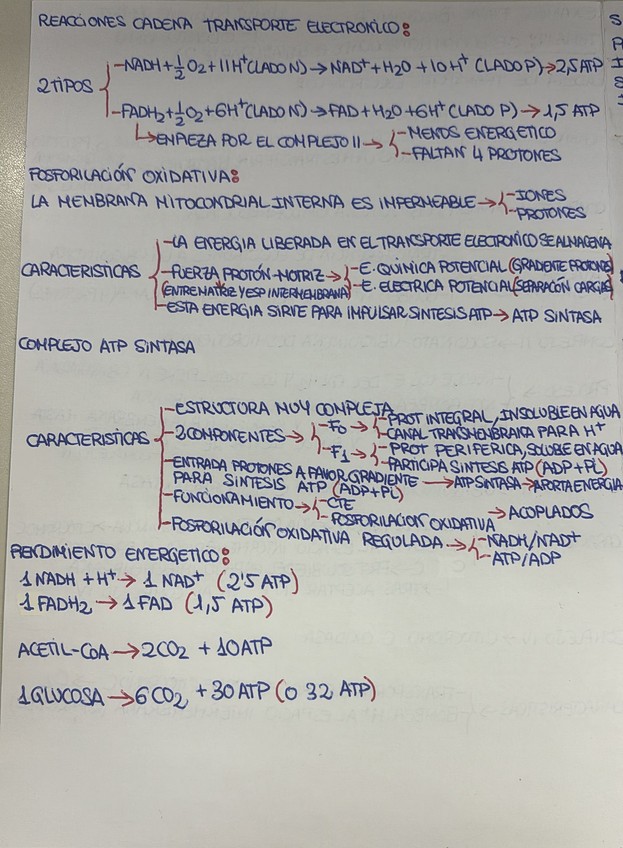 REACCIONES CADENA TRANSPORTE ELECTRONICO:
2 TIPOS
-NADH+½O2+11H+(LADO N)→NAD++H2O+10H+ (LADO P)→2,5 ATP
-FADH2+½O2+6H+(LADO N)→FAD+H2O+6H+(LADO P)→1,5 ATP
↳EMPIEZA POR EL COMPLEJO II→
-MENOS ENERGETICO
-FALTAN 4 PROTONES
FOSFORILACIÓN OXIDATIVA:
LA MEMBRANA MITOCONDRIAL INTERNA ES IMPERMEABLE→
-IONES
-PROTONES
CARACTERISTICAS
-LA ENERGIA LIBERADA EN EL TRANSPORTE ELECTRONICO SE ALMACENA
-FUERZA PROTÓN-MOTRIZ→
(ENTRE MATRIZ Y ESP INTERMEMBRANA)
-E. QUÍMICA POTENCIAL (GRADIENTE PROTONES)
-E. ELECTRICA POTENCIAL (SEPARACIÓN CARGAS)
-ESTA ENERGIA SIRVE PARA IMPULSAR SINTESIS ATP→ATP SINTASA
COMPLEJO ATP SINTASA
CARACTERISTICAS
-ESTRUCTURA MUY COMPLEJA
-2 COMPONENTES→
-F0→
-PROT INTEGRAL, INSOLUBLE EN AGUA
-CANAL TRANSMENBRANA PARA H+
-F1→
-PROT PERIFERICA, SOLUBE EN AGUA
-PARTICIPA SINTESIS ATP (ADP+Pi)
-ENTRADA PROTONES A FAVOR GRADIENTE
PARA SINTESIS ATP (ADP+Pi)
→ATP SINTASA→APORTA ENERGIA
-FUNCIONAMIENTO→
-CTE
-FOSFORILACION OXIDATIVA
→ACOPLADOS
-FOSFORILACIÓN OXIDATIVA REGULADA→
-NADH/NAD+
-ATP/ADP
RENDIMIENTO ENERGETICO:
1 NADH + H+→ 1 NAD+ (2'5 ATP)
1 FADH2 → 1 FAD (1,5 ATP)
ACETIL-COA→2CO2 + 10ATP
1 GLUCOSA→6CO2 + 30 ATP (O 32 ATP)